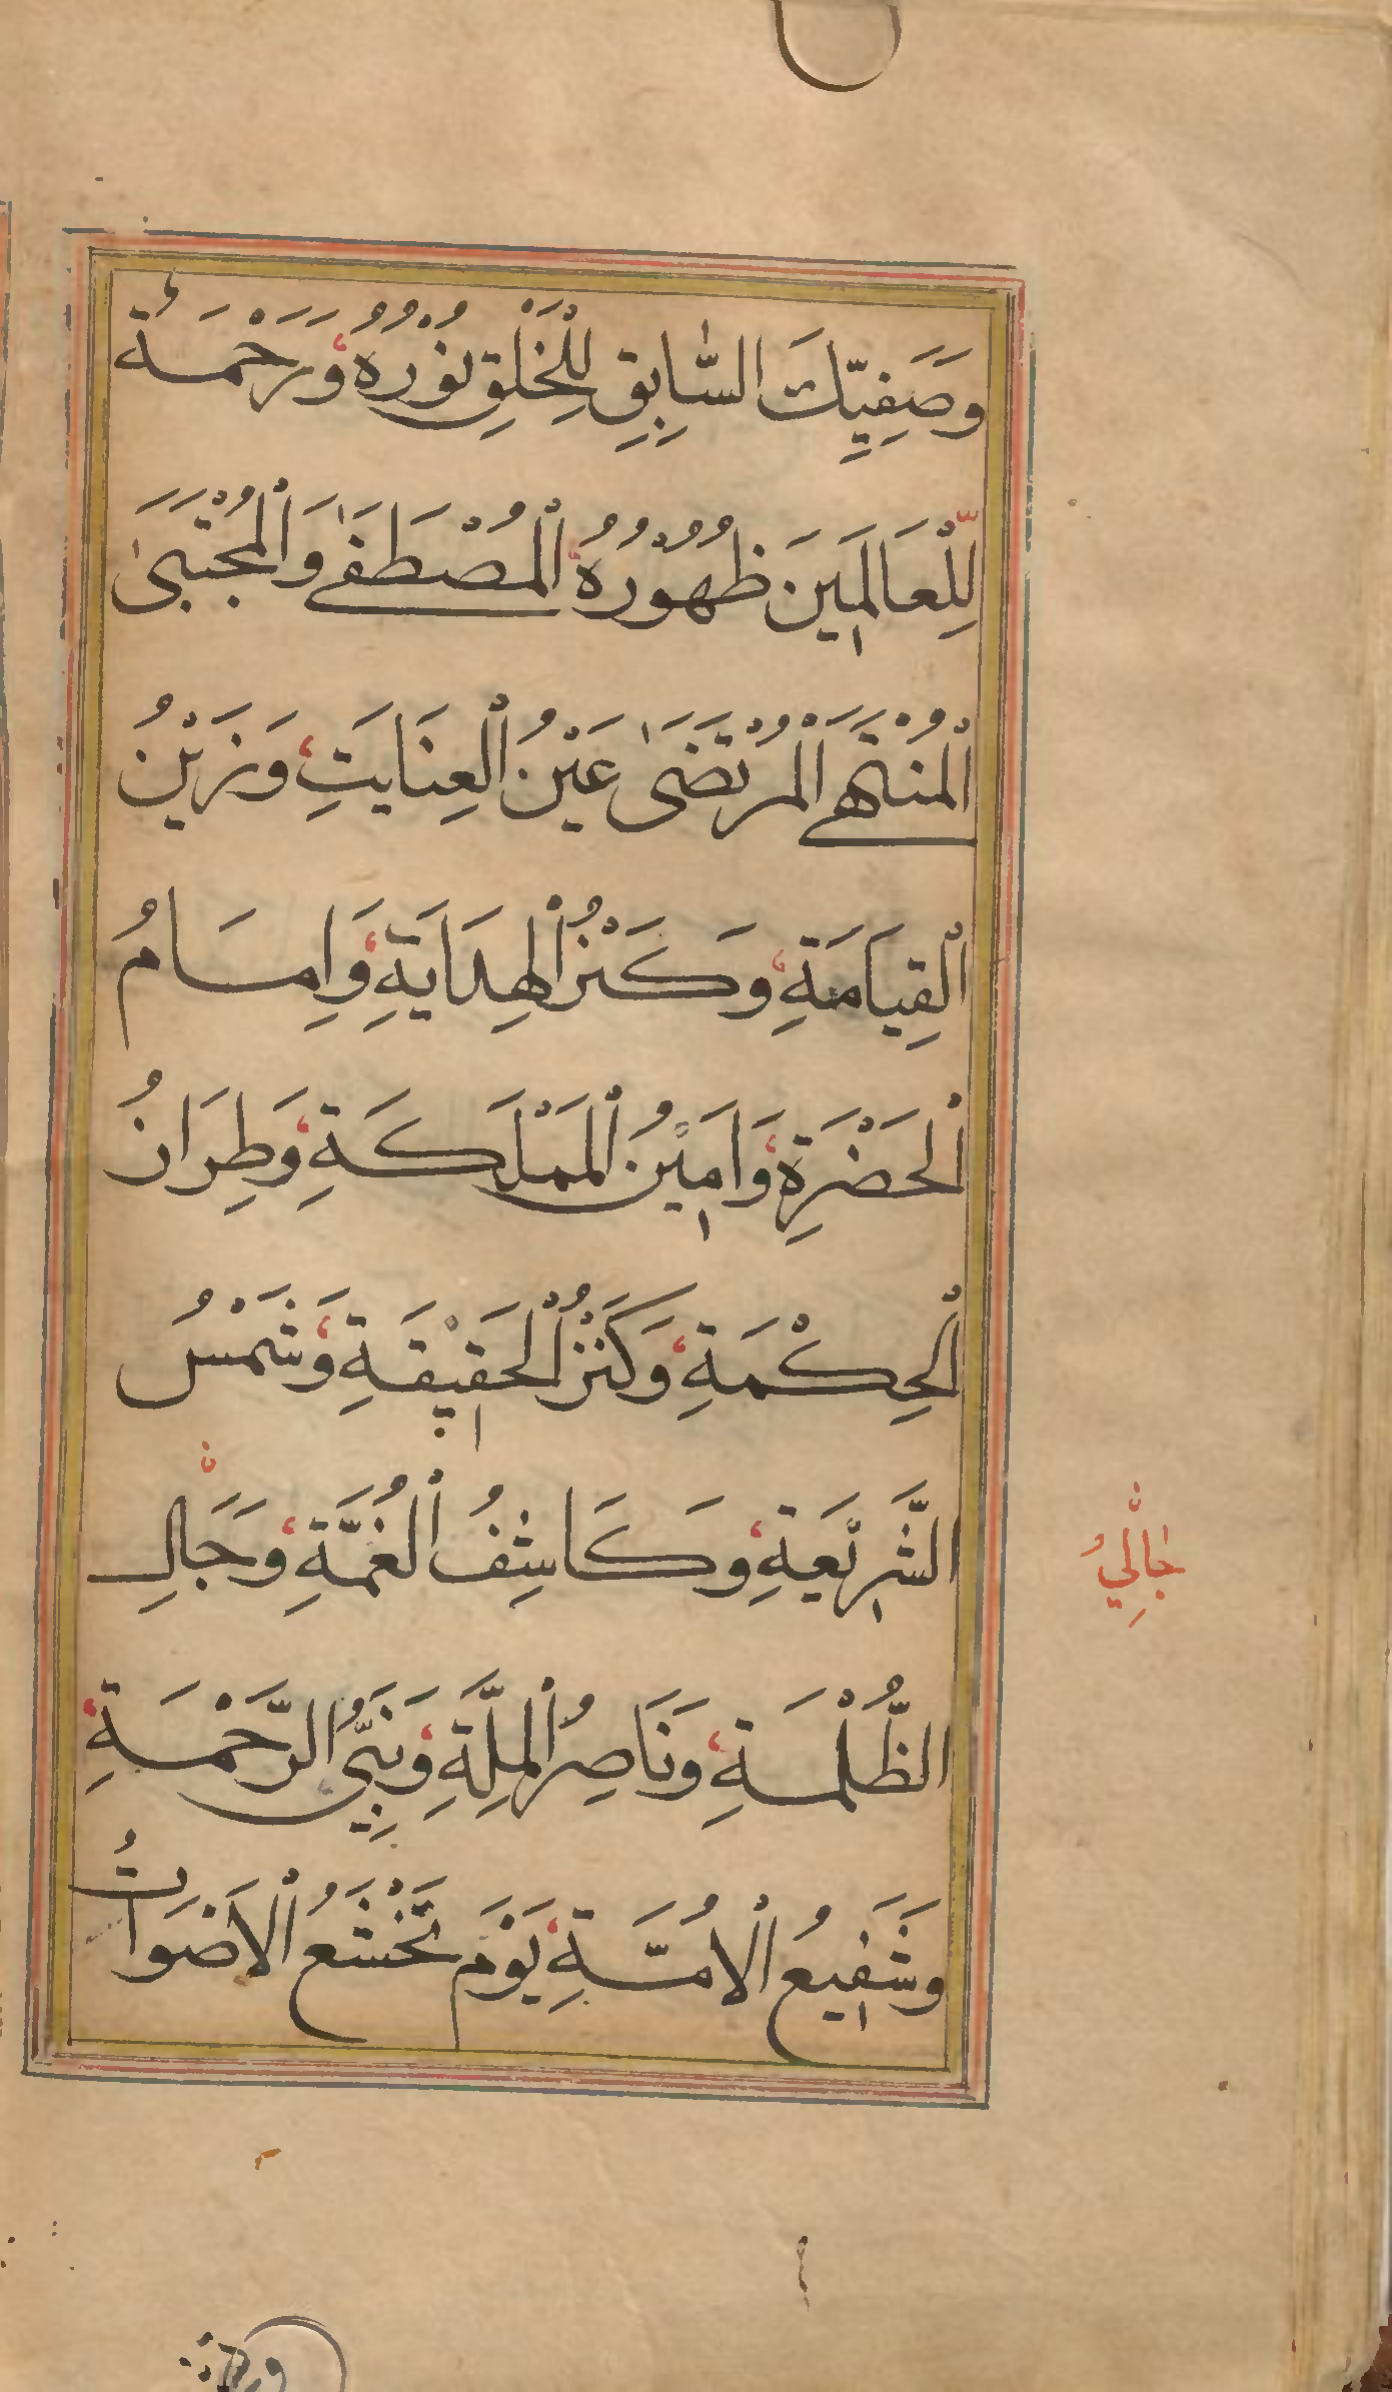 وَصَفِيِّكَ السَّابِقِ لِلْخَلْقِ نُوْرُهُ وَرَحْمَةٌ
لِلْعَالَمِينَ ظُهُوْرُهُ الْمُصْطَفٰى وَالْمُجْتَبَىٰ
الْمُنْتَهَى الْمُرْتَضَىٰ عَيْنُ الْعِنَايَتِ وَزَيْنُ
الْقِيَامَةِ وَكَنْزُ الْهِدَايَةِ وَاِمَامُ
الْحَضْرَةِ وَاَمِيْنُ الْمَمْلَكَةِ وَطِرَازُ
الْحِكْمَةِ وَكَنْزُ الْحَقِيْقَةِ وَشَمْسُ
الشَّرِيْعَةِ وَكَاشِفُ الْغُمَّةِ وَجَالِ
جَالِي
الظُّلْمَةِ وَنَاصِرُ الْمِلَّةِ وَنَبِيُّ الرَّحْمَةِ
وَشَفِيعُ الْاُمَّةِ يَوْمَ تَخْشَعُ الْاَصْوَاتُ